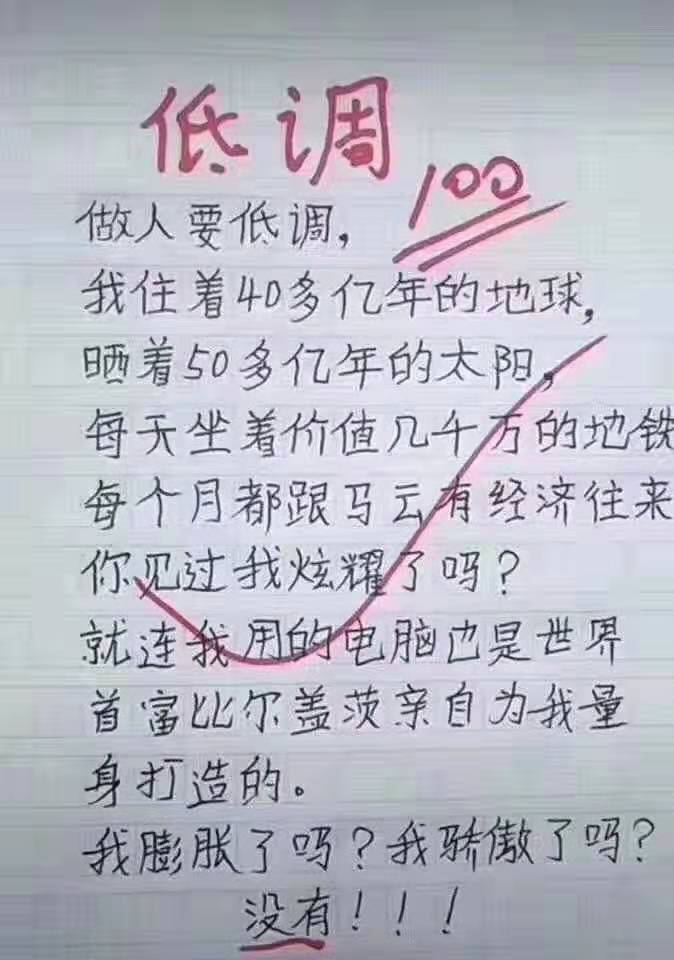 低调
100
做人要低调，
我住着40多亿年的地球，
晒着50多亿年的太阳，
每天坐着价值几千万的地铁
每个月都跟马云有经济往来
你见过我炫耀了吗？
就连我用的电脑也是世界
首富比尔盖茨亲自为我量
身打造的。
我膨胀了吗？我骄傲了吗？
没有！！！